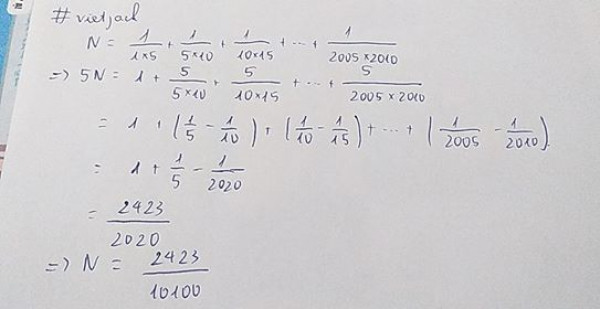 # vietjack
N = 1/1×5 + 1/5×10 + 1/10×15 + ... + 1/2005×2010
=> 5N = 1 + 5/5×10 + 5/10×15 + ... + 5/2005×2010
= 1 + (1/5 - 1/10) + (1/10 - 1/15) + ... + (1/2005 - 1/2010).
= 1 + 1/5 - 1/2020
= 2423/2020
=> N = 2423/10100